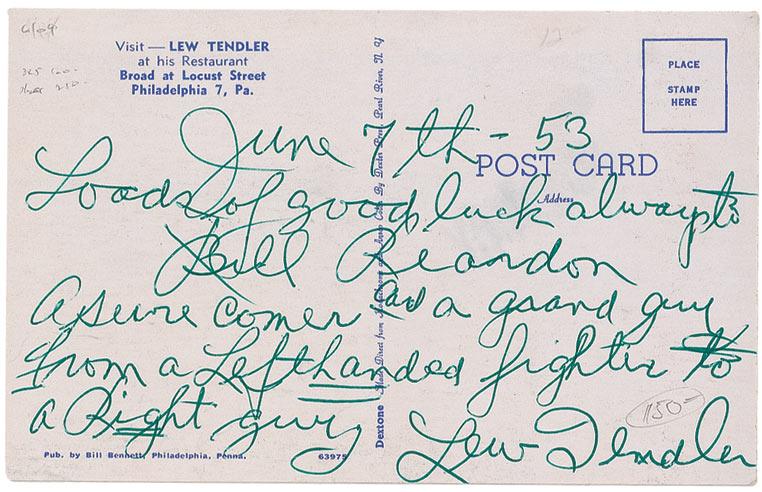 Visit — LEW TENDLER
at his Restaurant
Broad at Locust Street
Philadelphia 7, Pa.
PLACE
STAMP
HERE
June 7th - 53
POST CARD
Address
Loads of good luck always to
Bill Reardon
A sure comer and a grand guy
from a Lefthanded fighter to
a Right guy Lew Tendler
Pub. by Bill Bennett, Philadelphia, Penna.
63975
Dextone Made Direct from Kodachrome and Ansco Color By Dexter Press, Pearl River, N. Y.
1150-